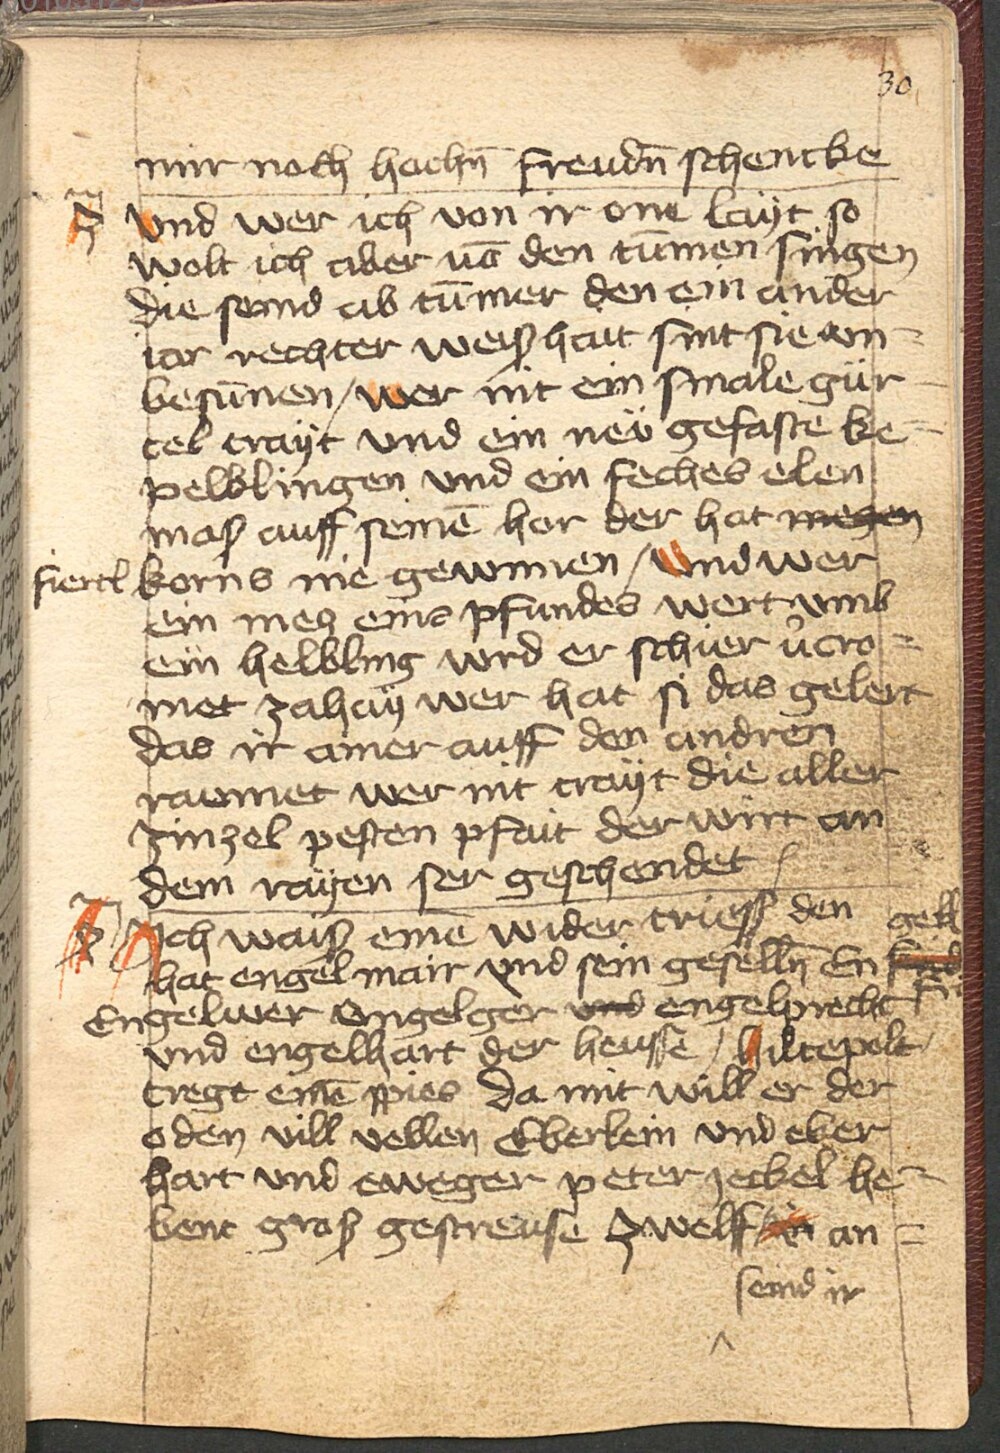 30
mir noch hochn̄ freudn̄ schencke
3 vnd wer ich von ir one layt so
wolt ich aber vō den tūmen singen
die seind ab tūmer den ein ander
iar rechter weiß hait sint sie vn=
besūnen / wer nit ein smale gür=
tel trayt und ein neü gefaste ke=
pelklingen vnd ein seches elen
maß auff seinē hor der hat megen
fiertl korns nie gewunnen / vnd wer
ein mecz eins pfundes wert vmb
ein helbling wrd er schier v̊cro=
met zahay wer hat si das gelert
das ir ainer auff den andren
raumet wer nit trayt die aller
zinzel pesten pfait der wirt an
dem rayen ser geschendet /
Ich waiß einē wider triess den
hat engel mair vnd sein geselln̄ En
Engelwer Engelger und engelprecht
vnd engelhart der heusse / hiltepolt /
tregt einē spies da mit will er der
oden vill vellen Eberlein vnd eber
hart vnd eweger peter jeckel he=
bent groß gestreuse Zwelff in an=
seind ir